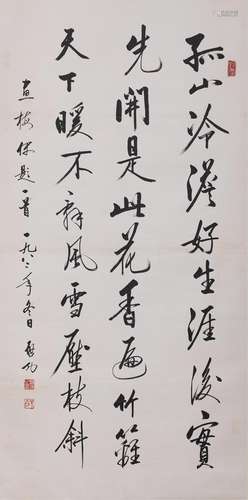 孤山冷淡好生涯後實
先開是此花香遍竹籬
天下暖不辭風雪壓枝斜
畫梅俤題一首一九八二年冬日啟功